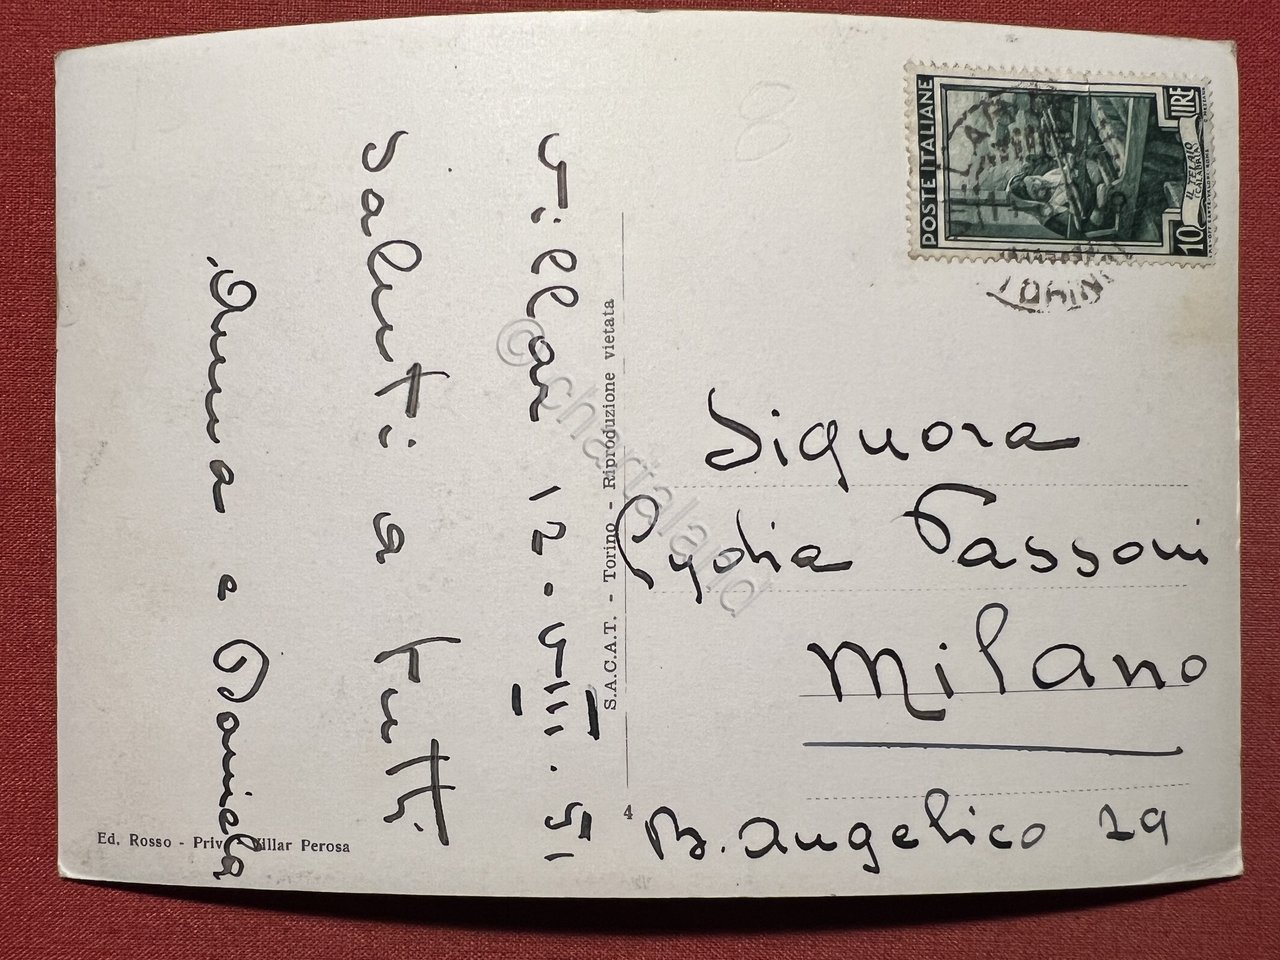 Villar 12-VIII.51
Saluti a tutti
Anna e Daniela
Ed. Rosso - Priv Villar Perosa
S.A.C.A.T. - Torino - Riproduzione vietata
4
POSTE ITALIANE
LIRE
10
IL TELAIO
(CALABRIA)
VILLAR
TORINO
Signora
Lydia Passoni
Milano
B. Angelico 29
©chartaland